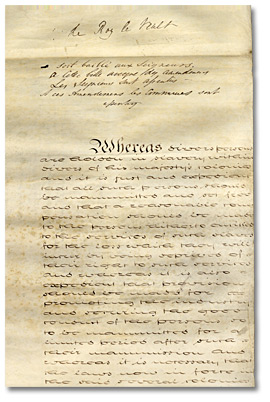 Le Roy le Veult
Soit baillé aux Seigneurs
A cette Bille avecque des Amendemens
Les Seigneurs sont assentus
A ces Amendemens les Communes sont
assentus
Whereas divers persons
are holden in slavery within
divers of his majestys colonies
and it is just and expedient
that all such persons should
be manumitted and set free
and that a reasonable com
pensation should be made
to the persons hitherto entitled
to the services of such slaves
for the loss which they will
incur by being deprived of
their right to such services
and whereas it is also
expedient that provision
should be made for
promoting the industry
and securing the good
conduct of the persons so
to be manumitted for a
limited period after such
their manumission and
whereas it is necessary that
the laws now in force in
the said several colonies